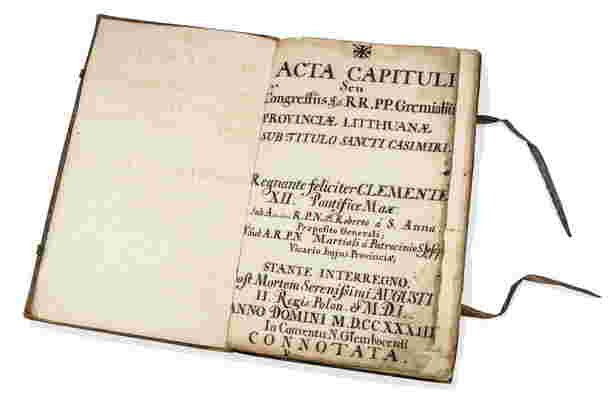 ACTA CAPITULI
Seu
Congressus RR. PP. Gremialiu
PROVINCIÆ LITTHUANÆ
SUB TITULO SANCTI CASIMIRI.
Regnante feliciter CLEMENTE
XII. Pontifice Max:
Sub A. R. P. N. Roberto á S. Anna
Præposito Generali;
Sub A. R. P. N. Martiali á Patrocinio
Vicario hujus Provinciæ,
STANTE INTERREGNO.
ost Mortem Serenissimi AUGUSTI
II. Regis Polon. & M. D. L.
ANNO DOMINI M.D.CCXXXIII
In Conventu N. Glembocensi
CONNOTATA.